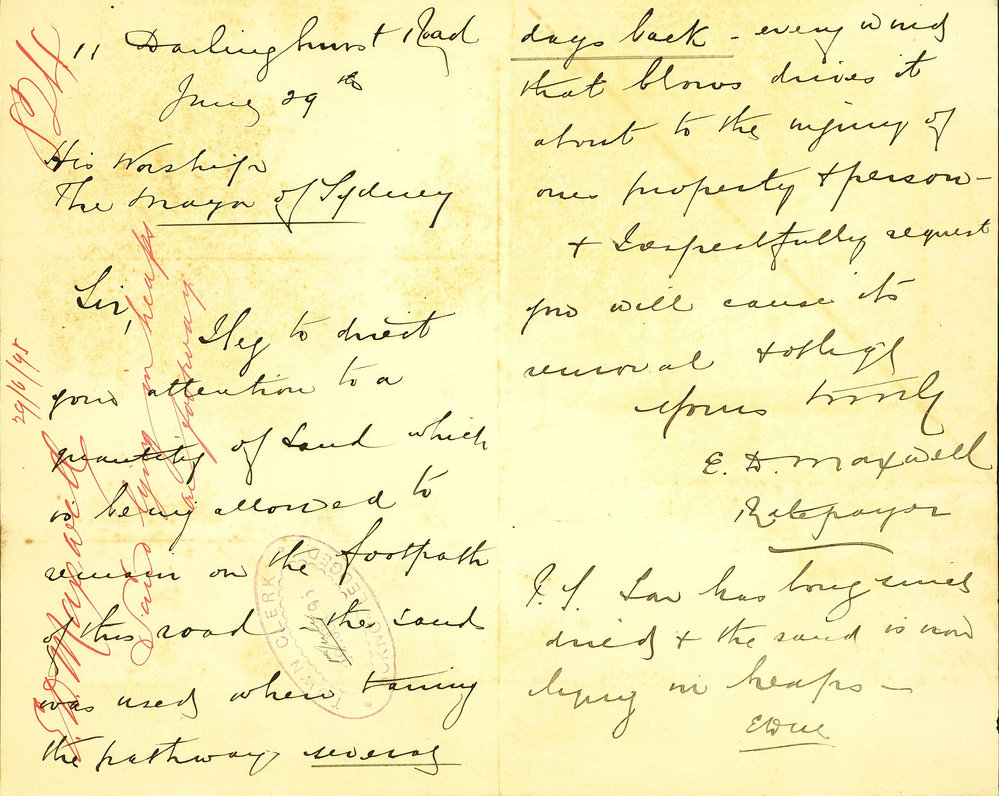 11 Darlinghurst Road
June 29th
His Worship
The Mayor of Sydney
Sir,
I beg to direct
your attention to a
quantity of sand which
is being allowed to
remain on the footpath
of this road the sand
was used when taring
the pathway several
days back - every wind
that blows drives it
about to the injury of
ones property & person -
& I respectfully request
you will cause its
removal & oblige
Yours truly
E. D. Maxwell
Ratepayer
P.S. Tar has long since
dried & the sand is now
lying in heaps -
EDM
E. D. Maxwell
29/6/95
Sand lying in heaps
on footway
TOWN CLERK